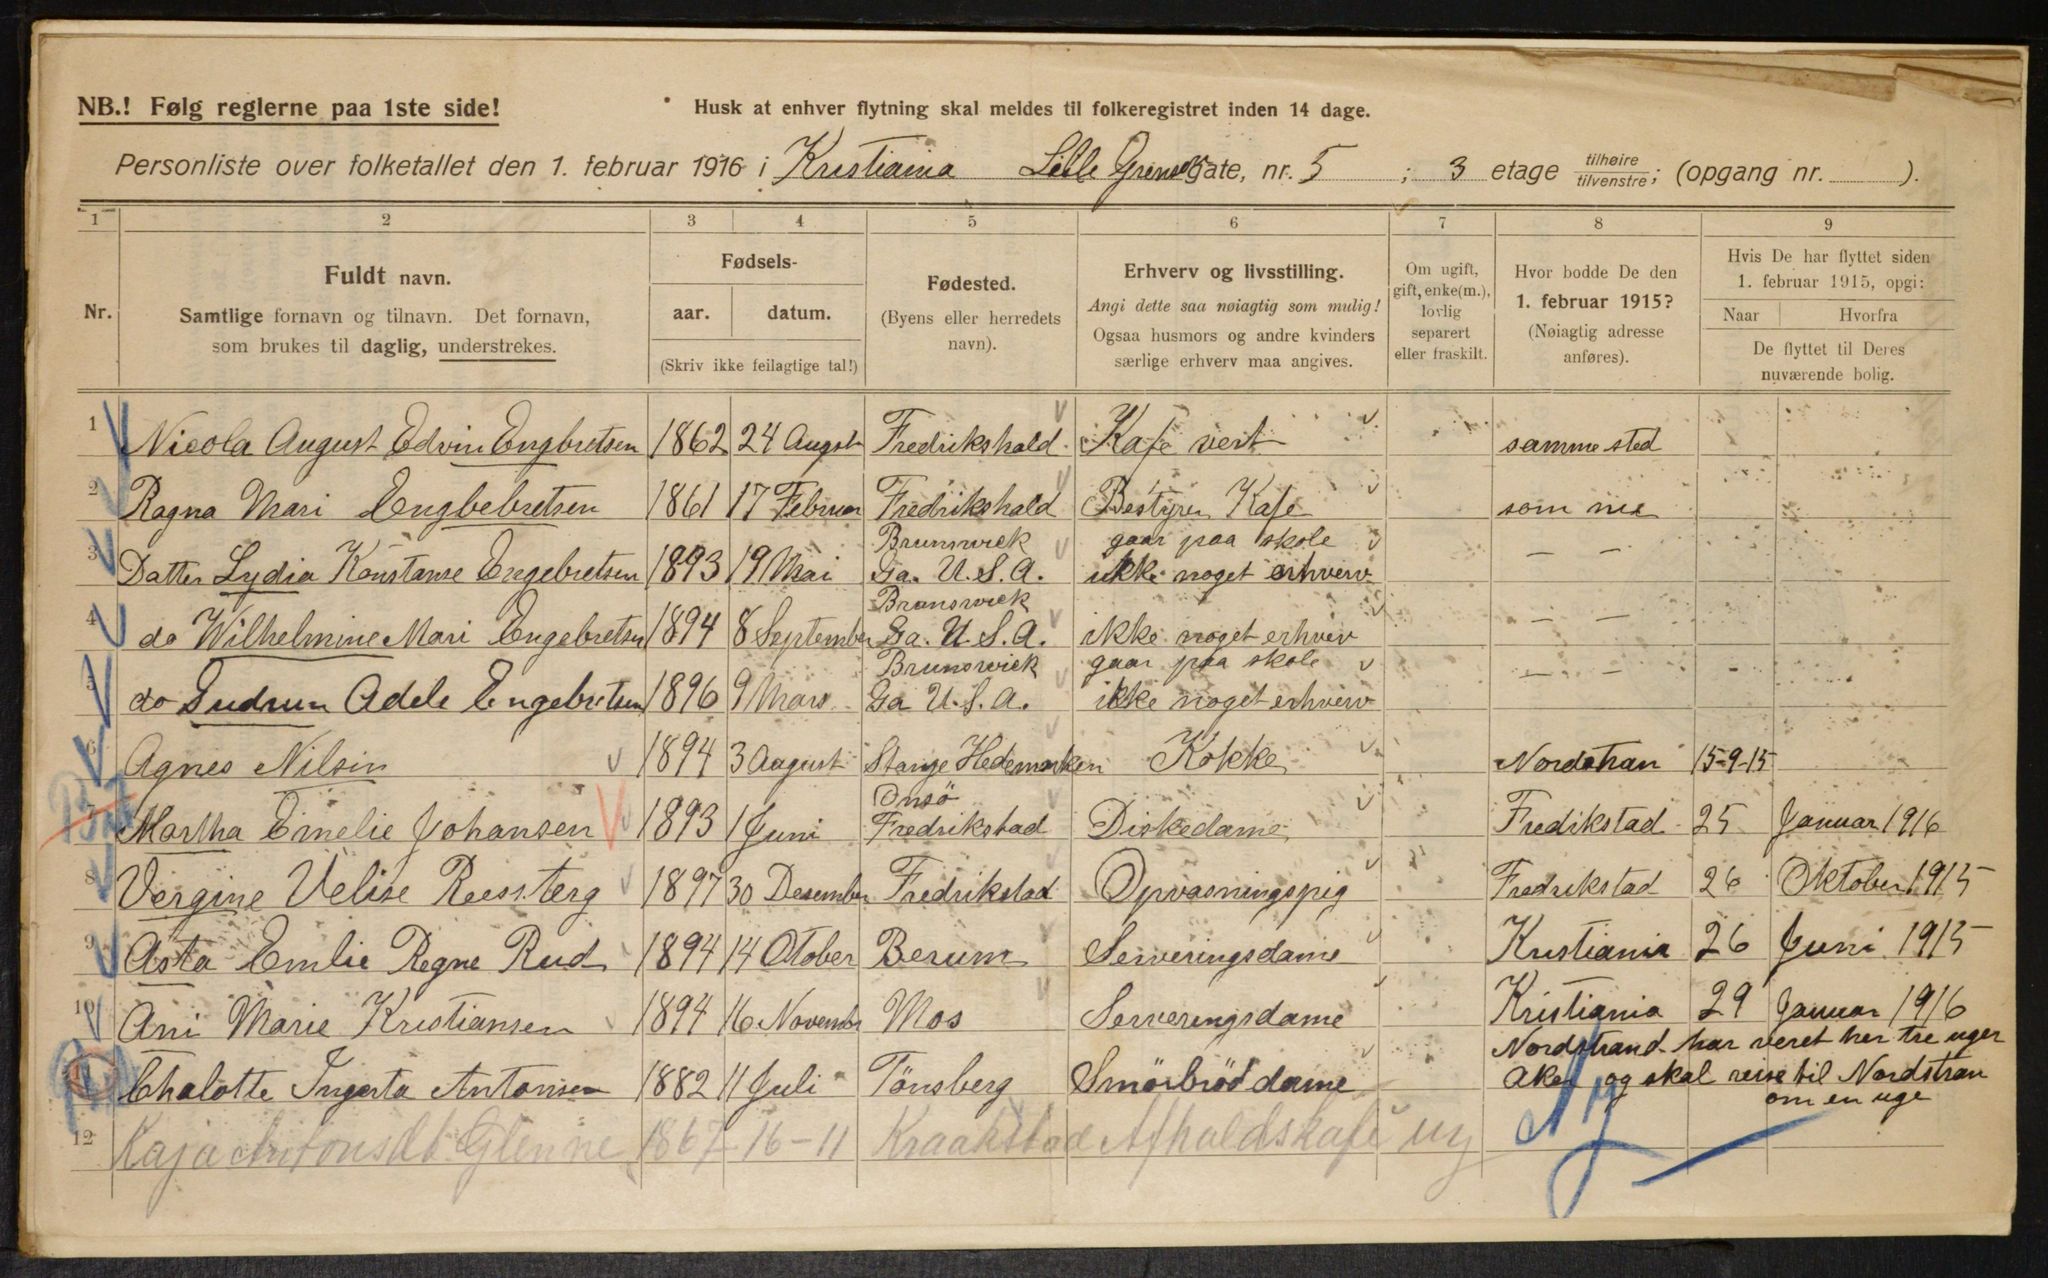 NB.! Følg reglerne paa 1ste side! Husk at enhver flytning skal meldes til folkeregistret inden 14 dage.
Personliste over folketallet den 1. februar 1916 i Kristiania Lille Grensegate, nr. 5 ; 3 etage tilhøire/tilvenstre; (opgang nr. ).
1 2 3 4 5 6 7 8 9
Nr.
Fuldt navn.
Samtlige fornavn og tilnavn. Det fornavn,
som brukes til daglig, understrekes.
Fødsels-
aar. datum.
(Skriv ikke feilagtige tal!)
Fødested.
(Byens eller herredets
navn).
Erhverv og livsstilling.
Angi dette saa nøiagtig som mulig!
Ogsaa husmors og andre kvinders
særlige erhverv maa angives.
Om ugift,
gift, enke(m.),
lovlig
separert
eller fraskilt.
Hvor bodde De den
1. februar 1915?
(Nøiagtig adresse
anføres).
Hvis De har flyttet siden
1. februar 1915, opgi:
Naar Hvorfra
De flyttet til Deres
nuværende bolig.
1 Nicola August Edvin Engbretsen 1862 24 August Fredrikshald Kafe vert samme sted
2 Ragna Mari Engbebretsen 1861 17 Februar Fredrikshald Bestyrer Kafe som nu
Brunswick gaar paa skole
3 Datter Lydia Konstanse Engebretsen 1893 19 Mai Ga. U.S.A. ikke noget erhverv — —
Brunswick
4 do Wilhelmine Mari Engebretsen 1894 8 September Ga. U.S.A. ikke noget erhverv — —
Brunswick gaar paa skole
5 do Gudrun Adele Engebretsen 1896 9 Mars Ga U.S.A. ikke noget erhverv — —
6 Agnes Nilsin 1894 3 August Stange Hedemarken Kokke Nordstran 15-9-15
Onsö
7 Martha Emelie Johansen 1893 1 Juni Fredrikstad Diskedame Fredikstad 25 Januar 1916
8 Vergine Velise 1897 30 Desember Fredrikstad Opvasningspig Fredrikstad 26 Oktober 1915
9 Asta Emlie Regne Rud 1894 14 Otober Berum Serveringsdame Kristiania 26 Juni 1915
10 Ani Marie Kristiansen 1894 16 November Mos Serveringsdame Kristiania 29 Januar 1916
Nordstrand har veret her tre uger
Chalotte Ingerta Antonsen 1882 11 Juli Tönsberg Smörbröddame Aker og skal reise til Nordstran
om en uge
12 Kaja Antonsdt. Glenne 1867 16-11 Kraakstad Afholdskafé ug Ny